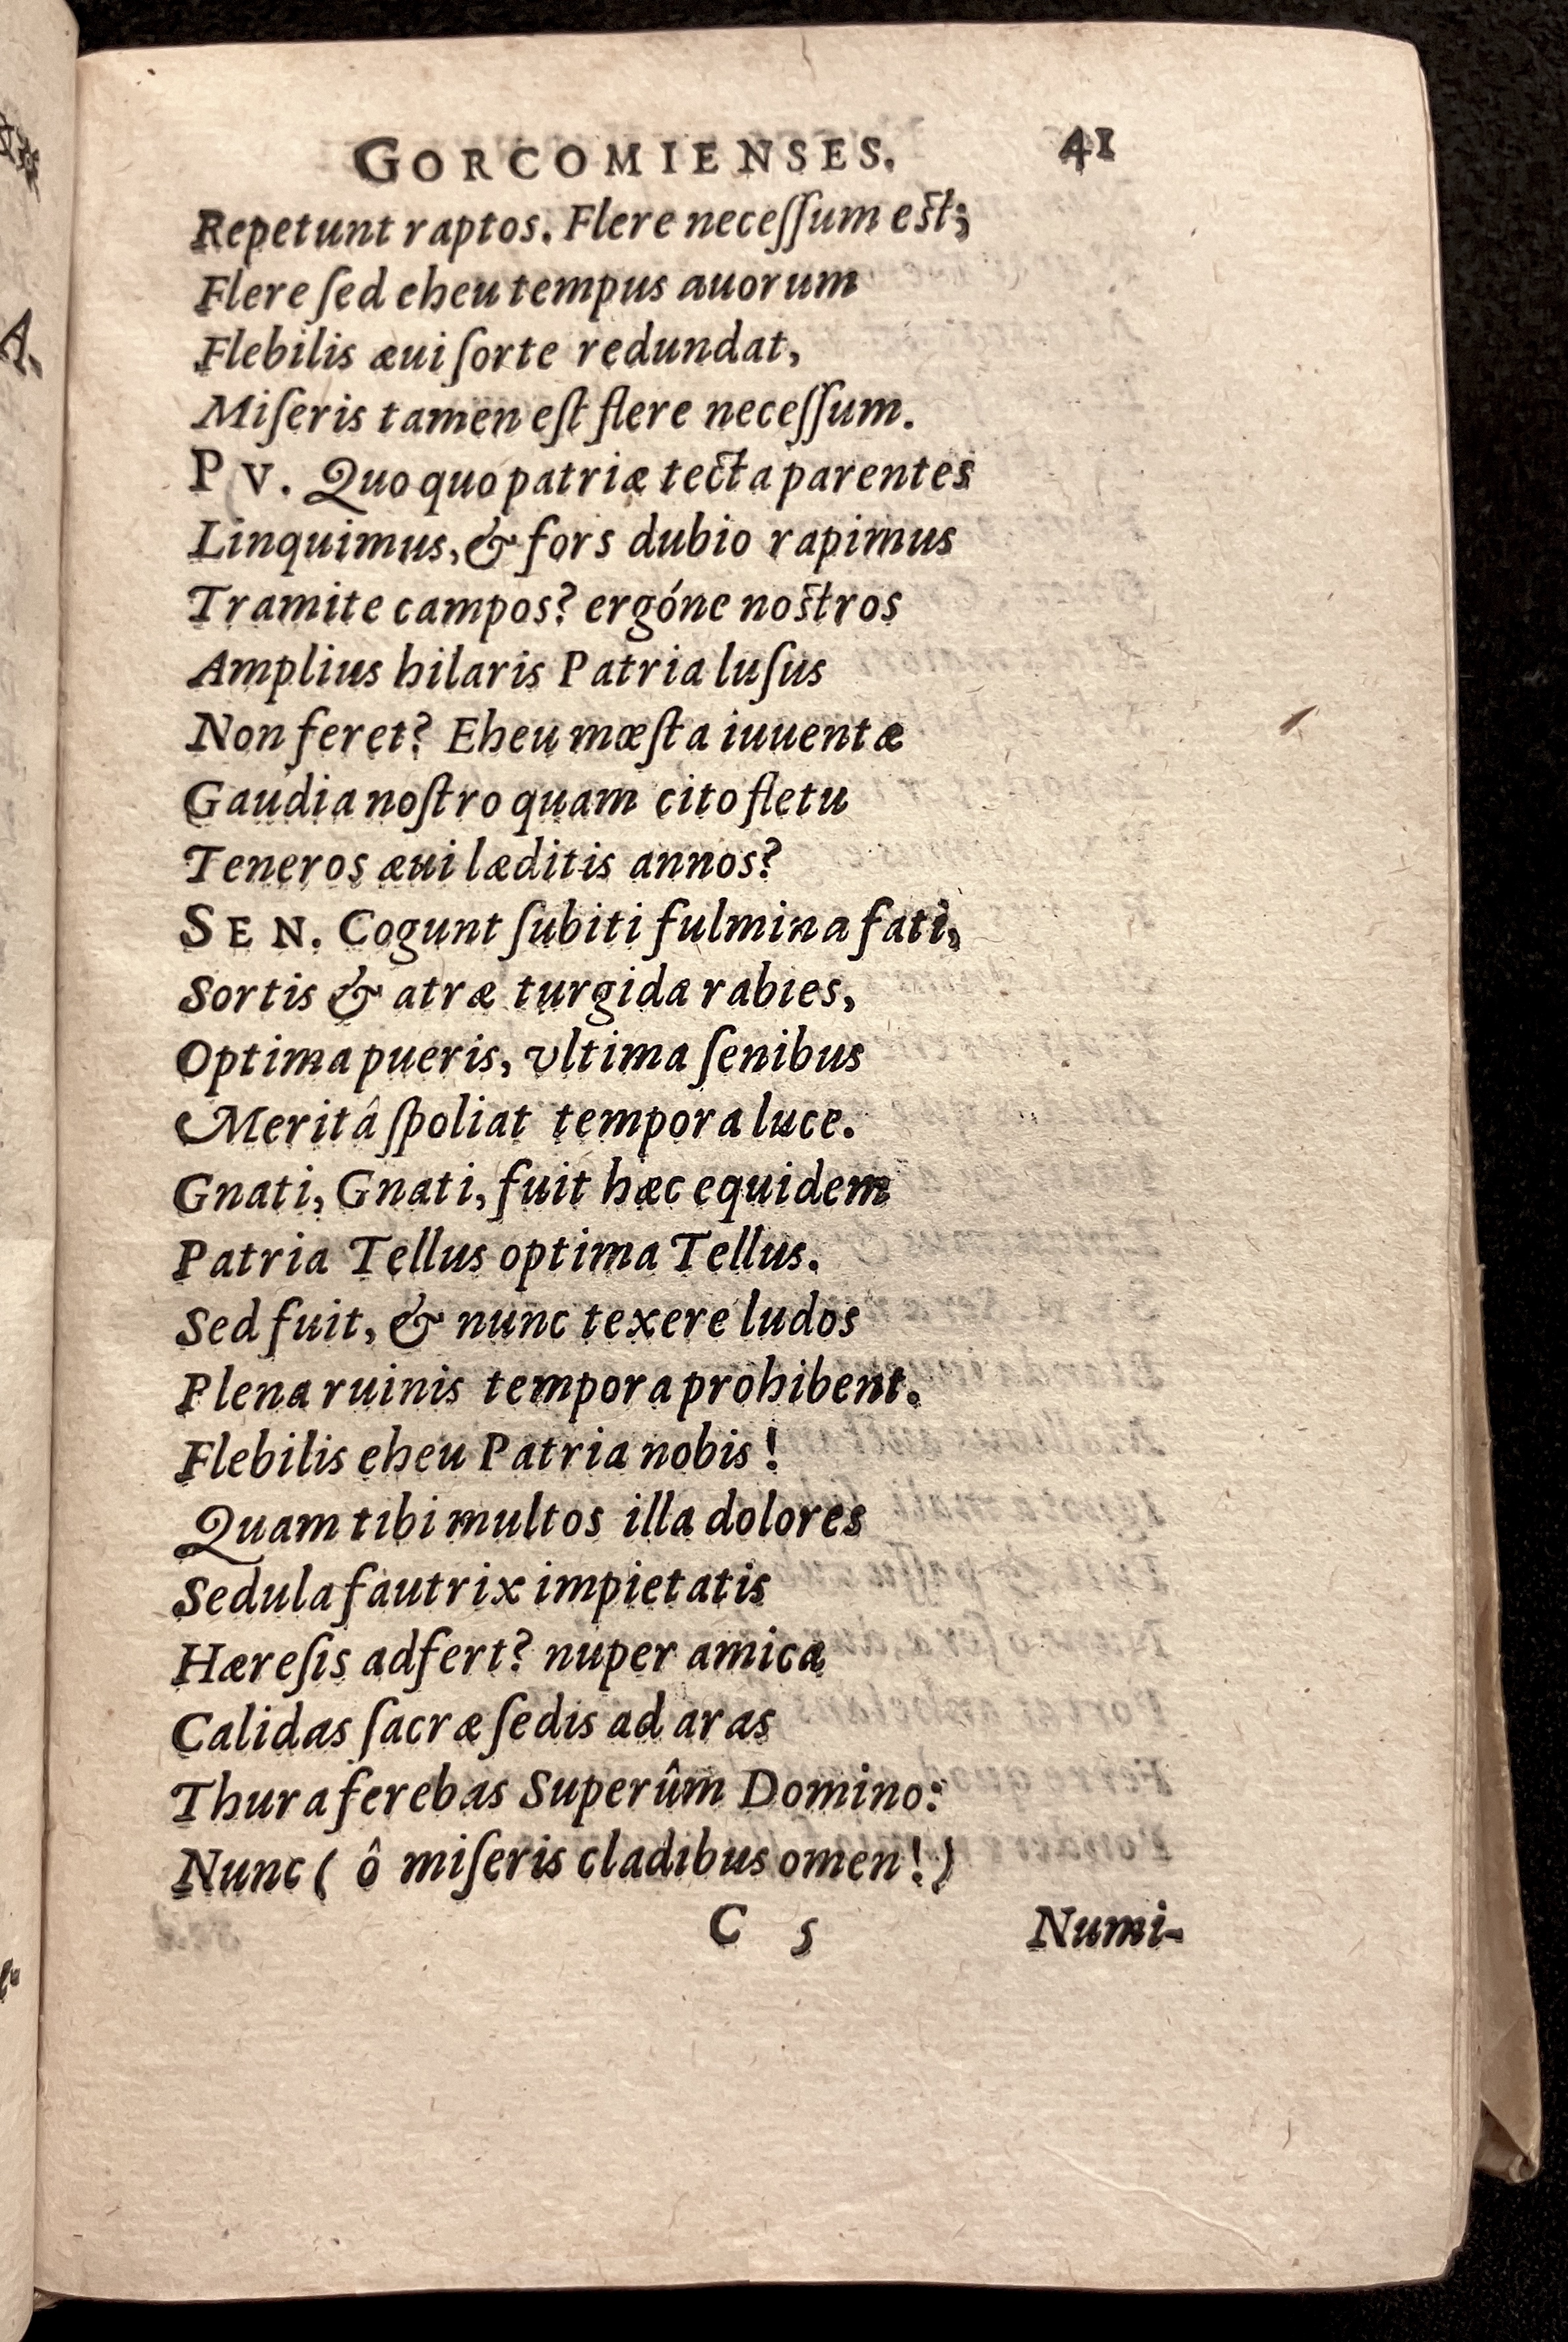 GORCOMIENSES. 41
Repetunt raptos. Flere neceſſum eſt;
Flere ſed eheu tempus auorum
Flebilis æui ſorte redundat,
Miſeris tamen eſt flere neceſſum.
PV. Quo quo patriæ tecta parentes
Linquimus, & fors dubio rapimus
Tramite campos? ergóne noſtros
Amplius hilaris Patria luſus
Non feret? Eheu mæſta iuuentæ
Gaudia noſtro quam cito fletu
Teneros æui læditis annos?
SEN. Cogunt ſubiti fulmina fati,
Sortis & atræ turgida rabies,
Optima pueris, vltima ſenibus
Meritâ ſpoliat tempora luce.
Gnati, Gnati, fuit hæc equidem
Patria Tellus optima Tellus.
Sed fuit, & nunc texere ludos
Plena ruinis tempora prohibent.
Flebilis eheu Patria nobis!
Quam tibi multos illa dolores
Sedula fautrix impietatis
Hæreſis adfert? nuper amica
Calidas ſacræ ſedis ad aras
Thura ferebas Superûm Domino:
Nunc ( ô miſeris cladibus omen! )
C 5 Numi-